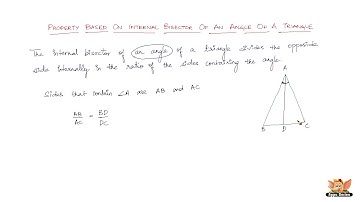 PROPERTY BASED ON INTERNAL BISECTOR OF AN ANGLE OF A TRIANGLE
The internal bisector of an angle of a triangle divides the opposite
side internally in the ratio of the sides containing the angle.
Sides that contain ∠A are AB and AC
AB/AC = BD/DC
A
B D C